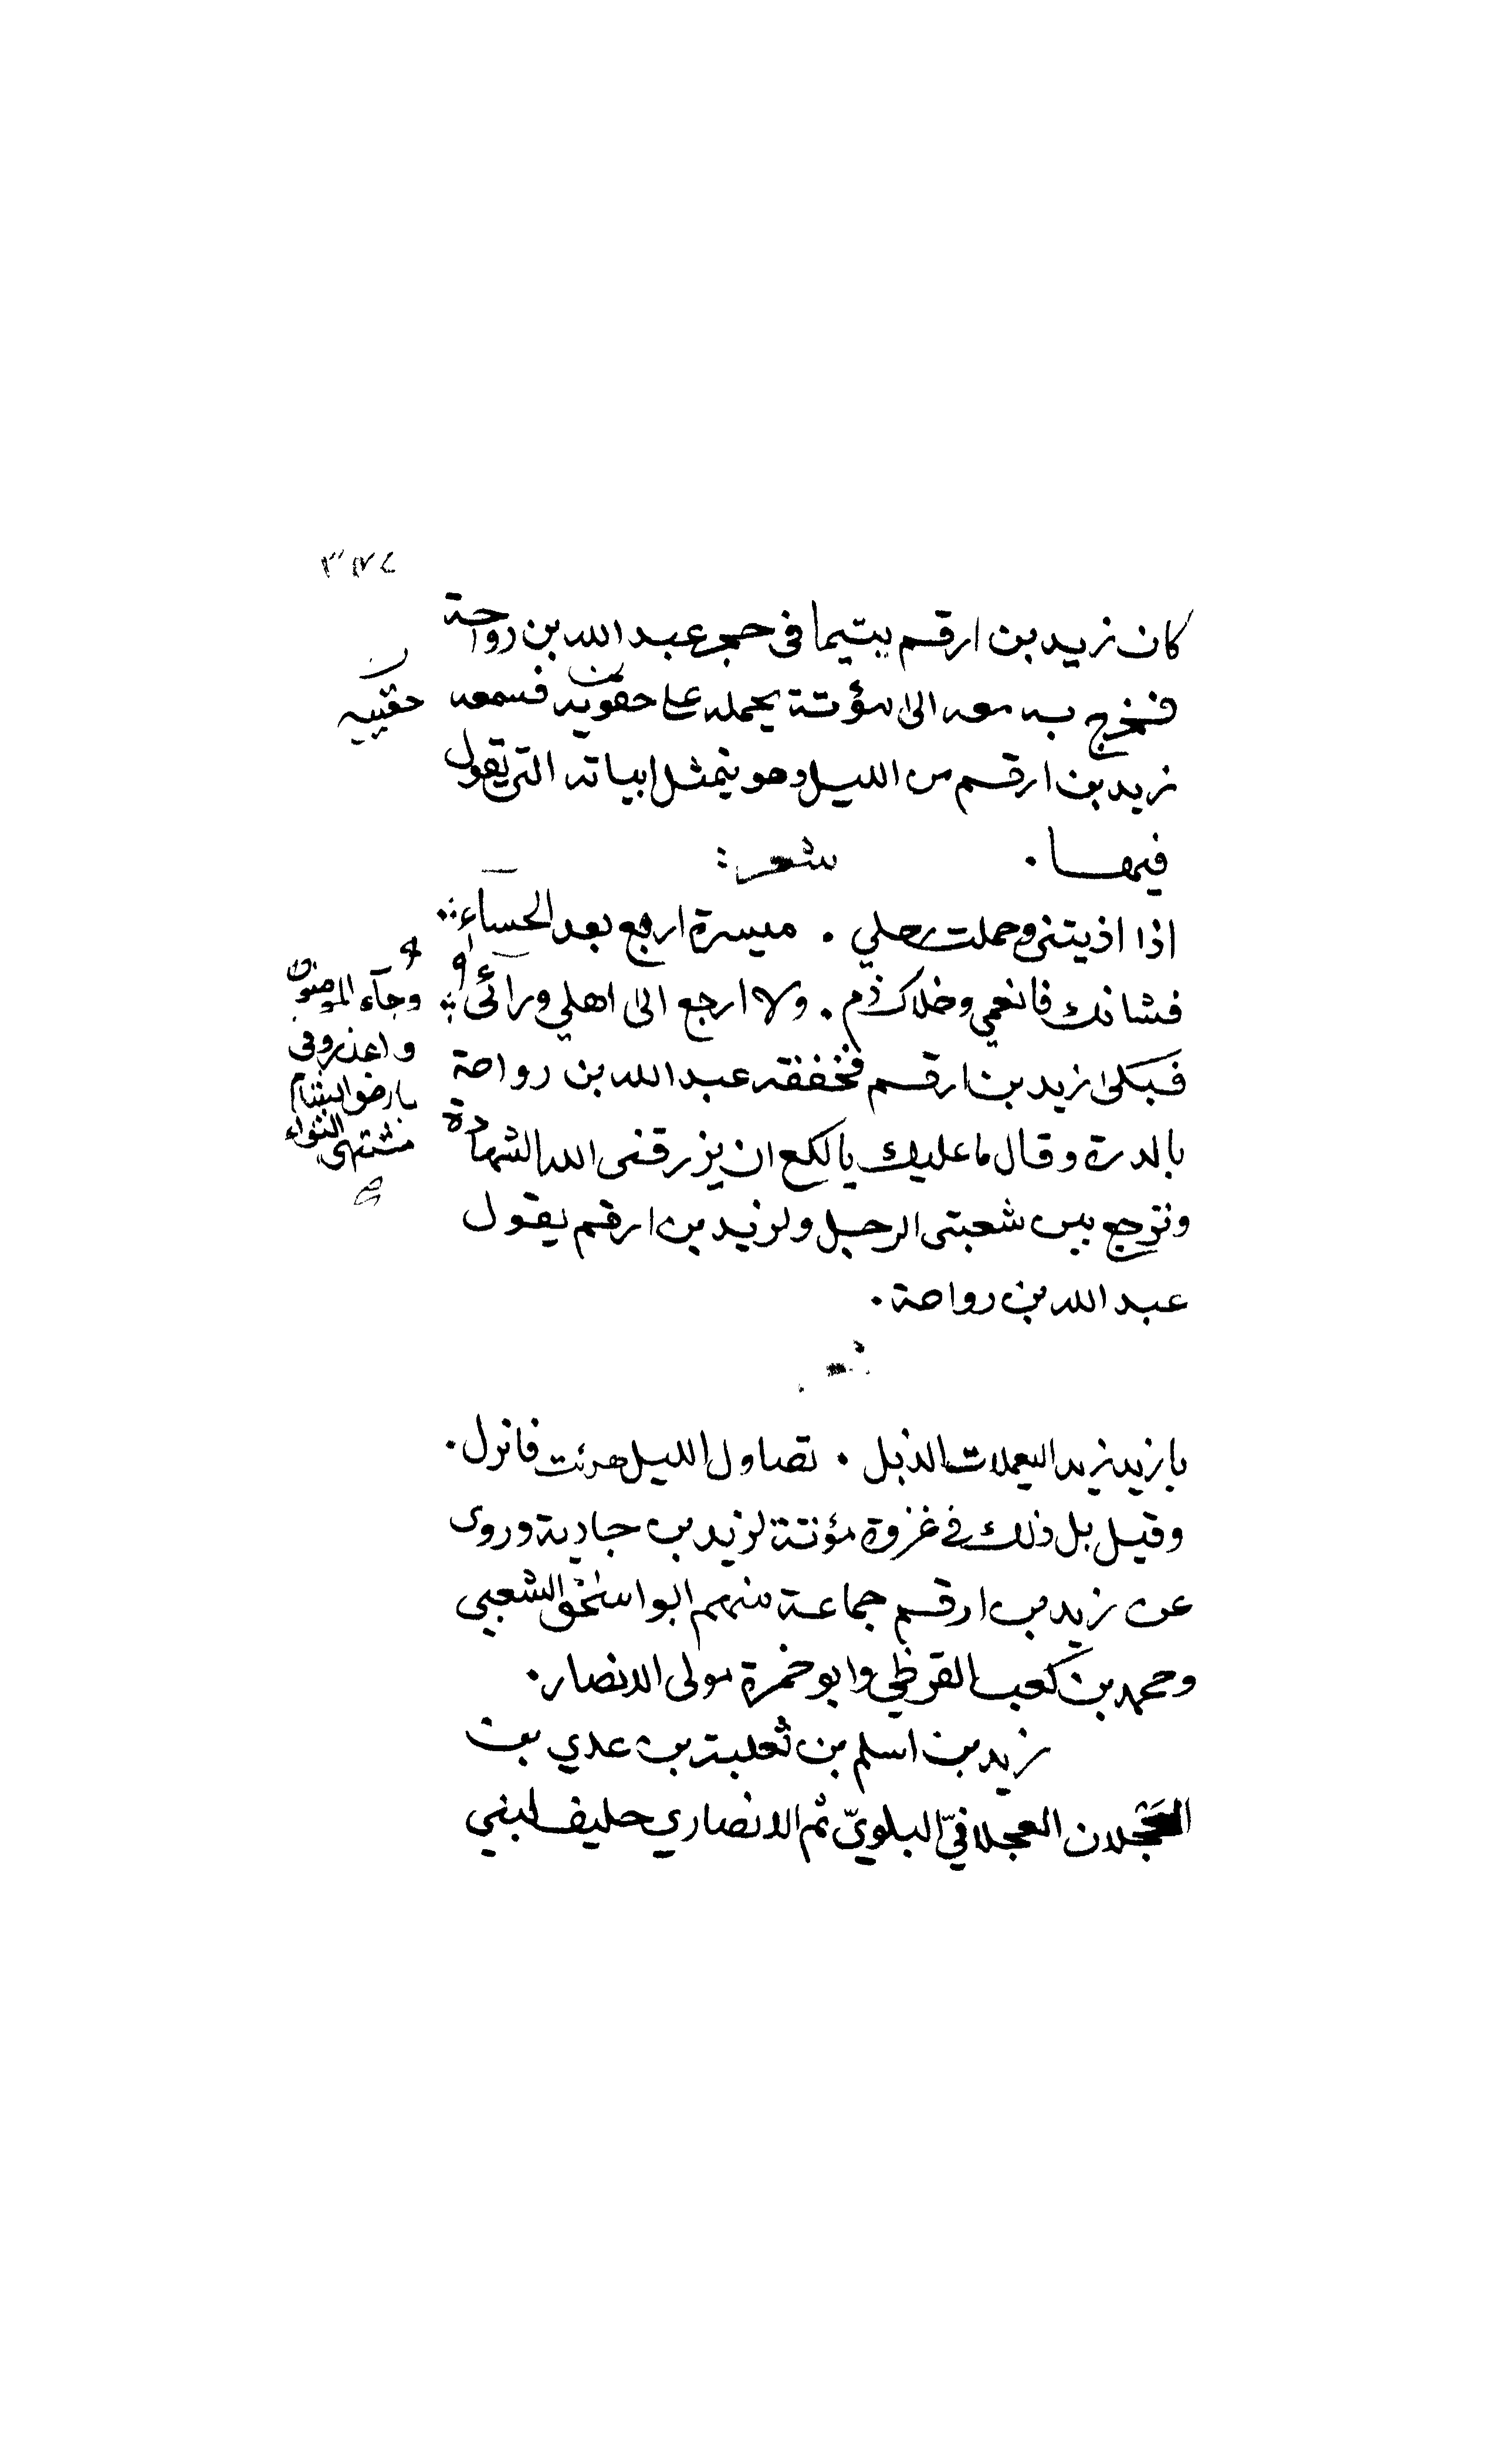 كان زيد بن ارقم يتيما فى حجر عبد الله بن رواحة
فخرج به معه الى مؤتة يحمله على حقويه فسمعه
حقيبه
زيد بن ارقم من الليل وهو يتمثل ابياته التى يقول
فيها . شعر :
اذا اذيتنى وحملت رحلي . مسيرة اربع بعد الحساء
فشانك فانعمي وخلاك ذم . ولا ارجع الى اهلي ورائى
وجاء المومنون
وغادرونى
بارض الشام
مشتهى الثواء
فبكى زيد بن ارقم فخفقه عبد الله بن رواحة
بالدرة وقال ما عليك يا لكع ان يرزقنى الله الشهادة
وترجع بين شعبتى الرحل ولزيد بن ارقم يقول
عبد الله بن رواحة .
يا زيد زيد اليعملات الذبل . تطاول الليل هديت فانزل .
وقيل بل ذلك في غزوة مؤتة لزيد بن حارثة وروى
عن زيد بن ارقم جماعة منهم ابو اسحق الشعبي
ومحمد بن كعب القرظي وابو حمزة مولى الانصار .
زيد بن اسلم بن ثعلبة بن عدي بن
العجلان العجلانيّ البلويّ ثم الانصاري حليف لبني